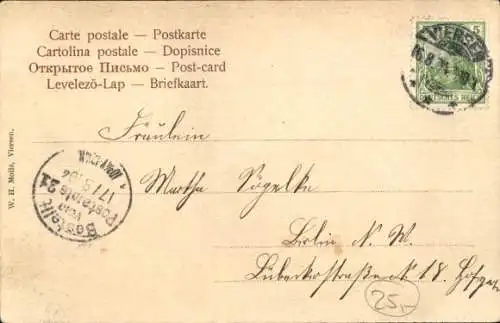 Carte postale — Postkarte
Cartolina postale — Dopisnice
Открытое Письмо — Post-card
Levelező-Lap — Briefkaart.
VIERSEN
5
DEUTSCHES REICH
Fräulein
Martha Vögelke
Berlin N. W.
Lübeckerstraße № 18. Hof
Bestellt
vom
Postamte 21
17/8
W. H. Molls, Viersen.
25,–